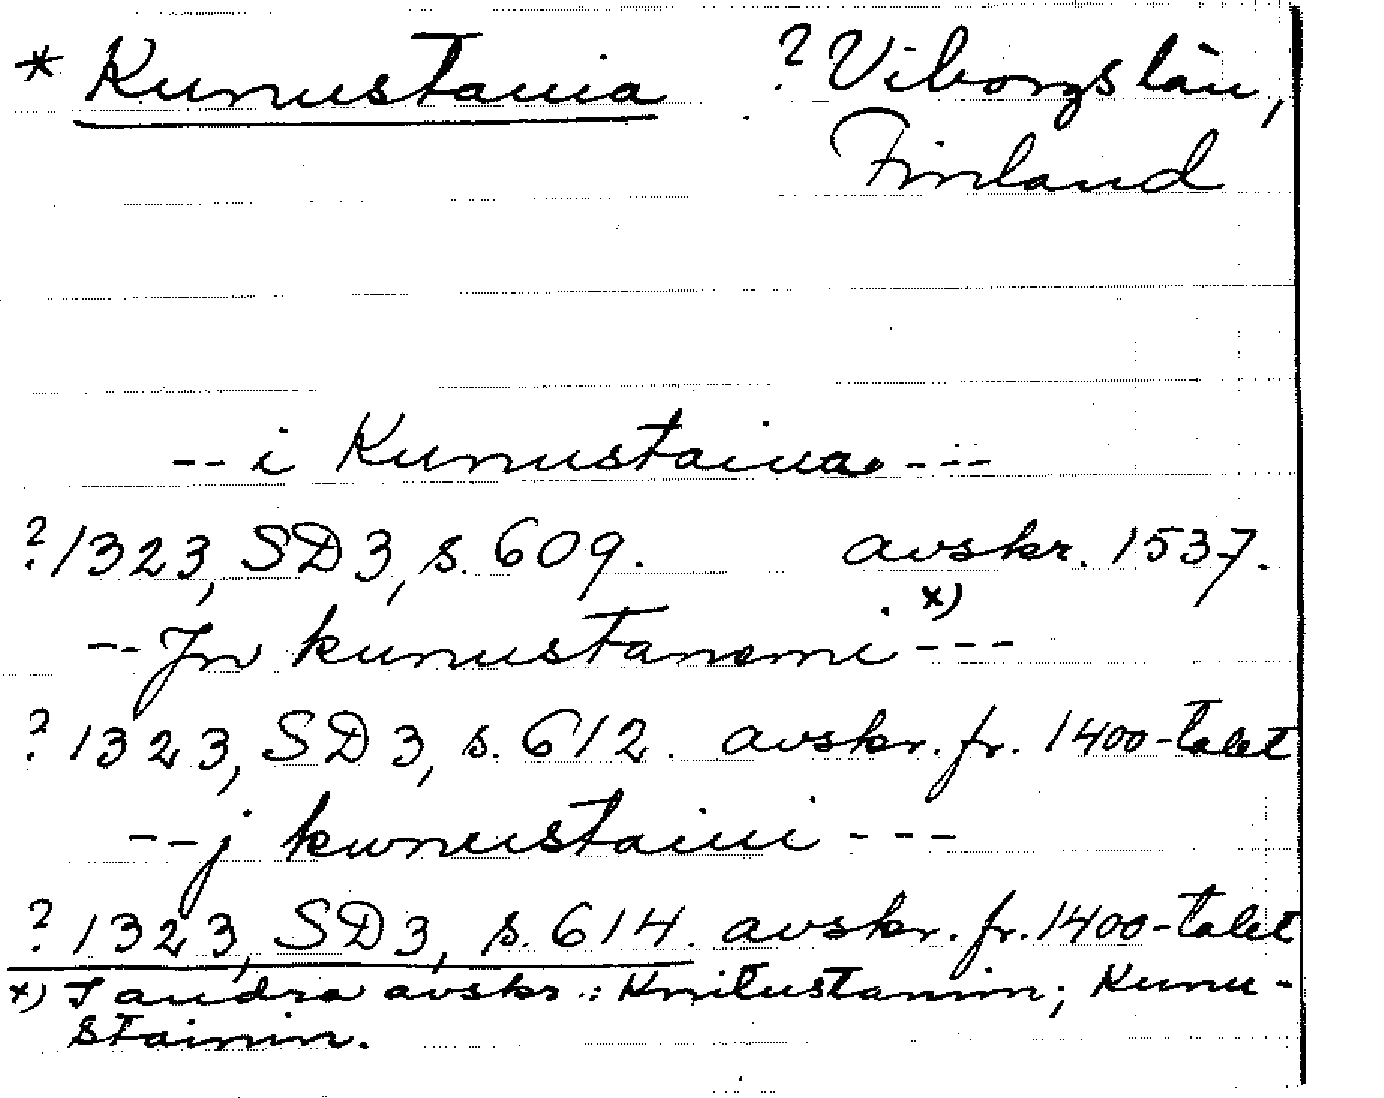 * Kunustania ? Viborgs län,
Finland
-- i Kunustaina ---
? 1323, SD 3, s. 609. avskr. 1537.
-- Jn kunustanemi x) ---
? 1323, SD 3, s. 612. avskr. fr. 1400-talet
-- j kwnustaini ---
? 1323, SD 3, s. 614. avskr. fr. 1400-talet
x) I andra avskr.: Knitustanin; Kunu-
stainin.